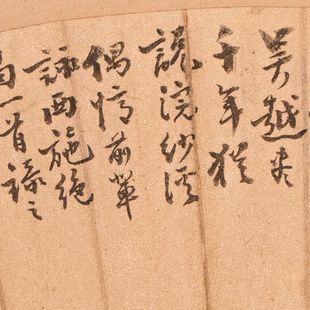 吳越
千年猶
説浣紗溪
偶憶前輩
詠西施絶
句一首録之